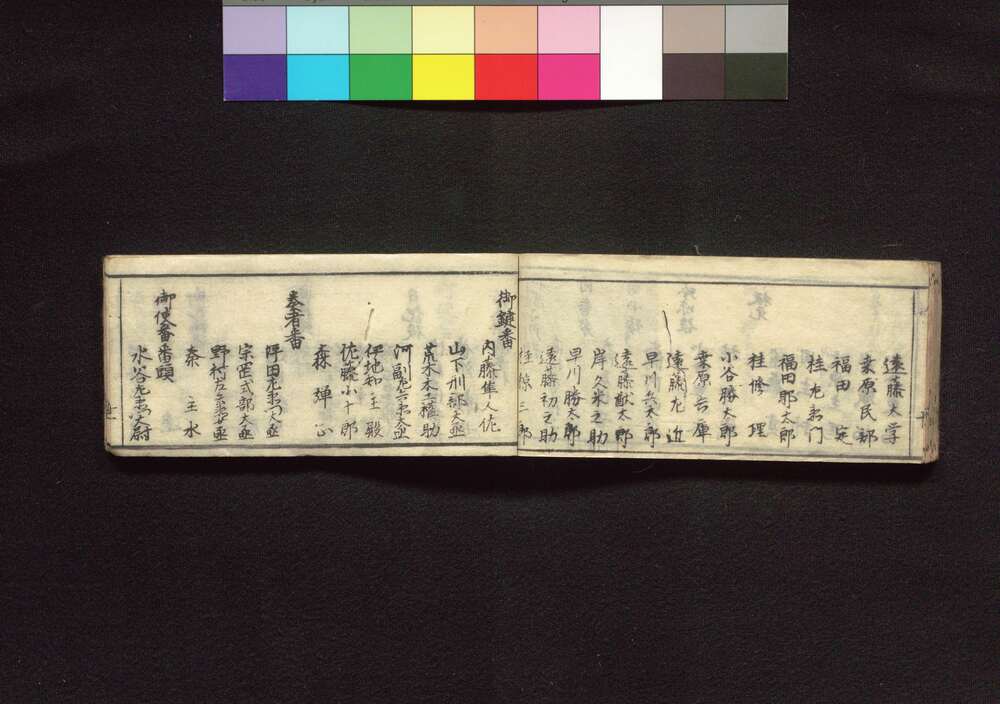 遠藤大学
桑原民部
福田定
桂九衛門
福田郡太郎
桂修理
小谷勝太郎
桑原兵庫
遠藤九近
早川兵太郎
遠藤猷太郎
岸久米之助
早川勝太郎
遠藤初之助
桂熊三郎
御鍵番
内藤隼人佐
山下刑部大丞
荒木木工権助
河副六衛大丞
伊地知主殿
佐藤小十郎
森弾正
奏者番
坪田九衛門大丞
宗岡式部大丞
野村右兵衛大丞
秦主水
御使番番頭
水谷九衛門大尉